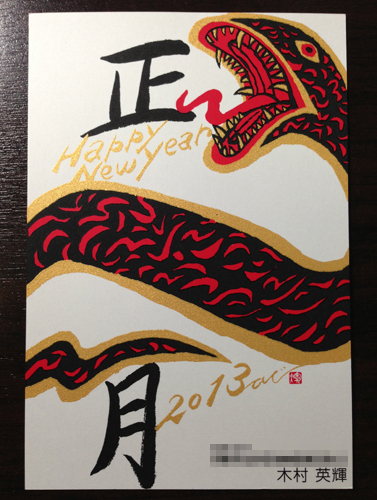 正
Happy
New Year
月
2013 ac
木村 英輝